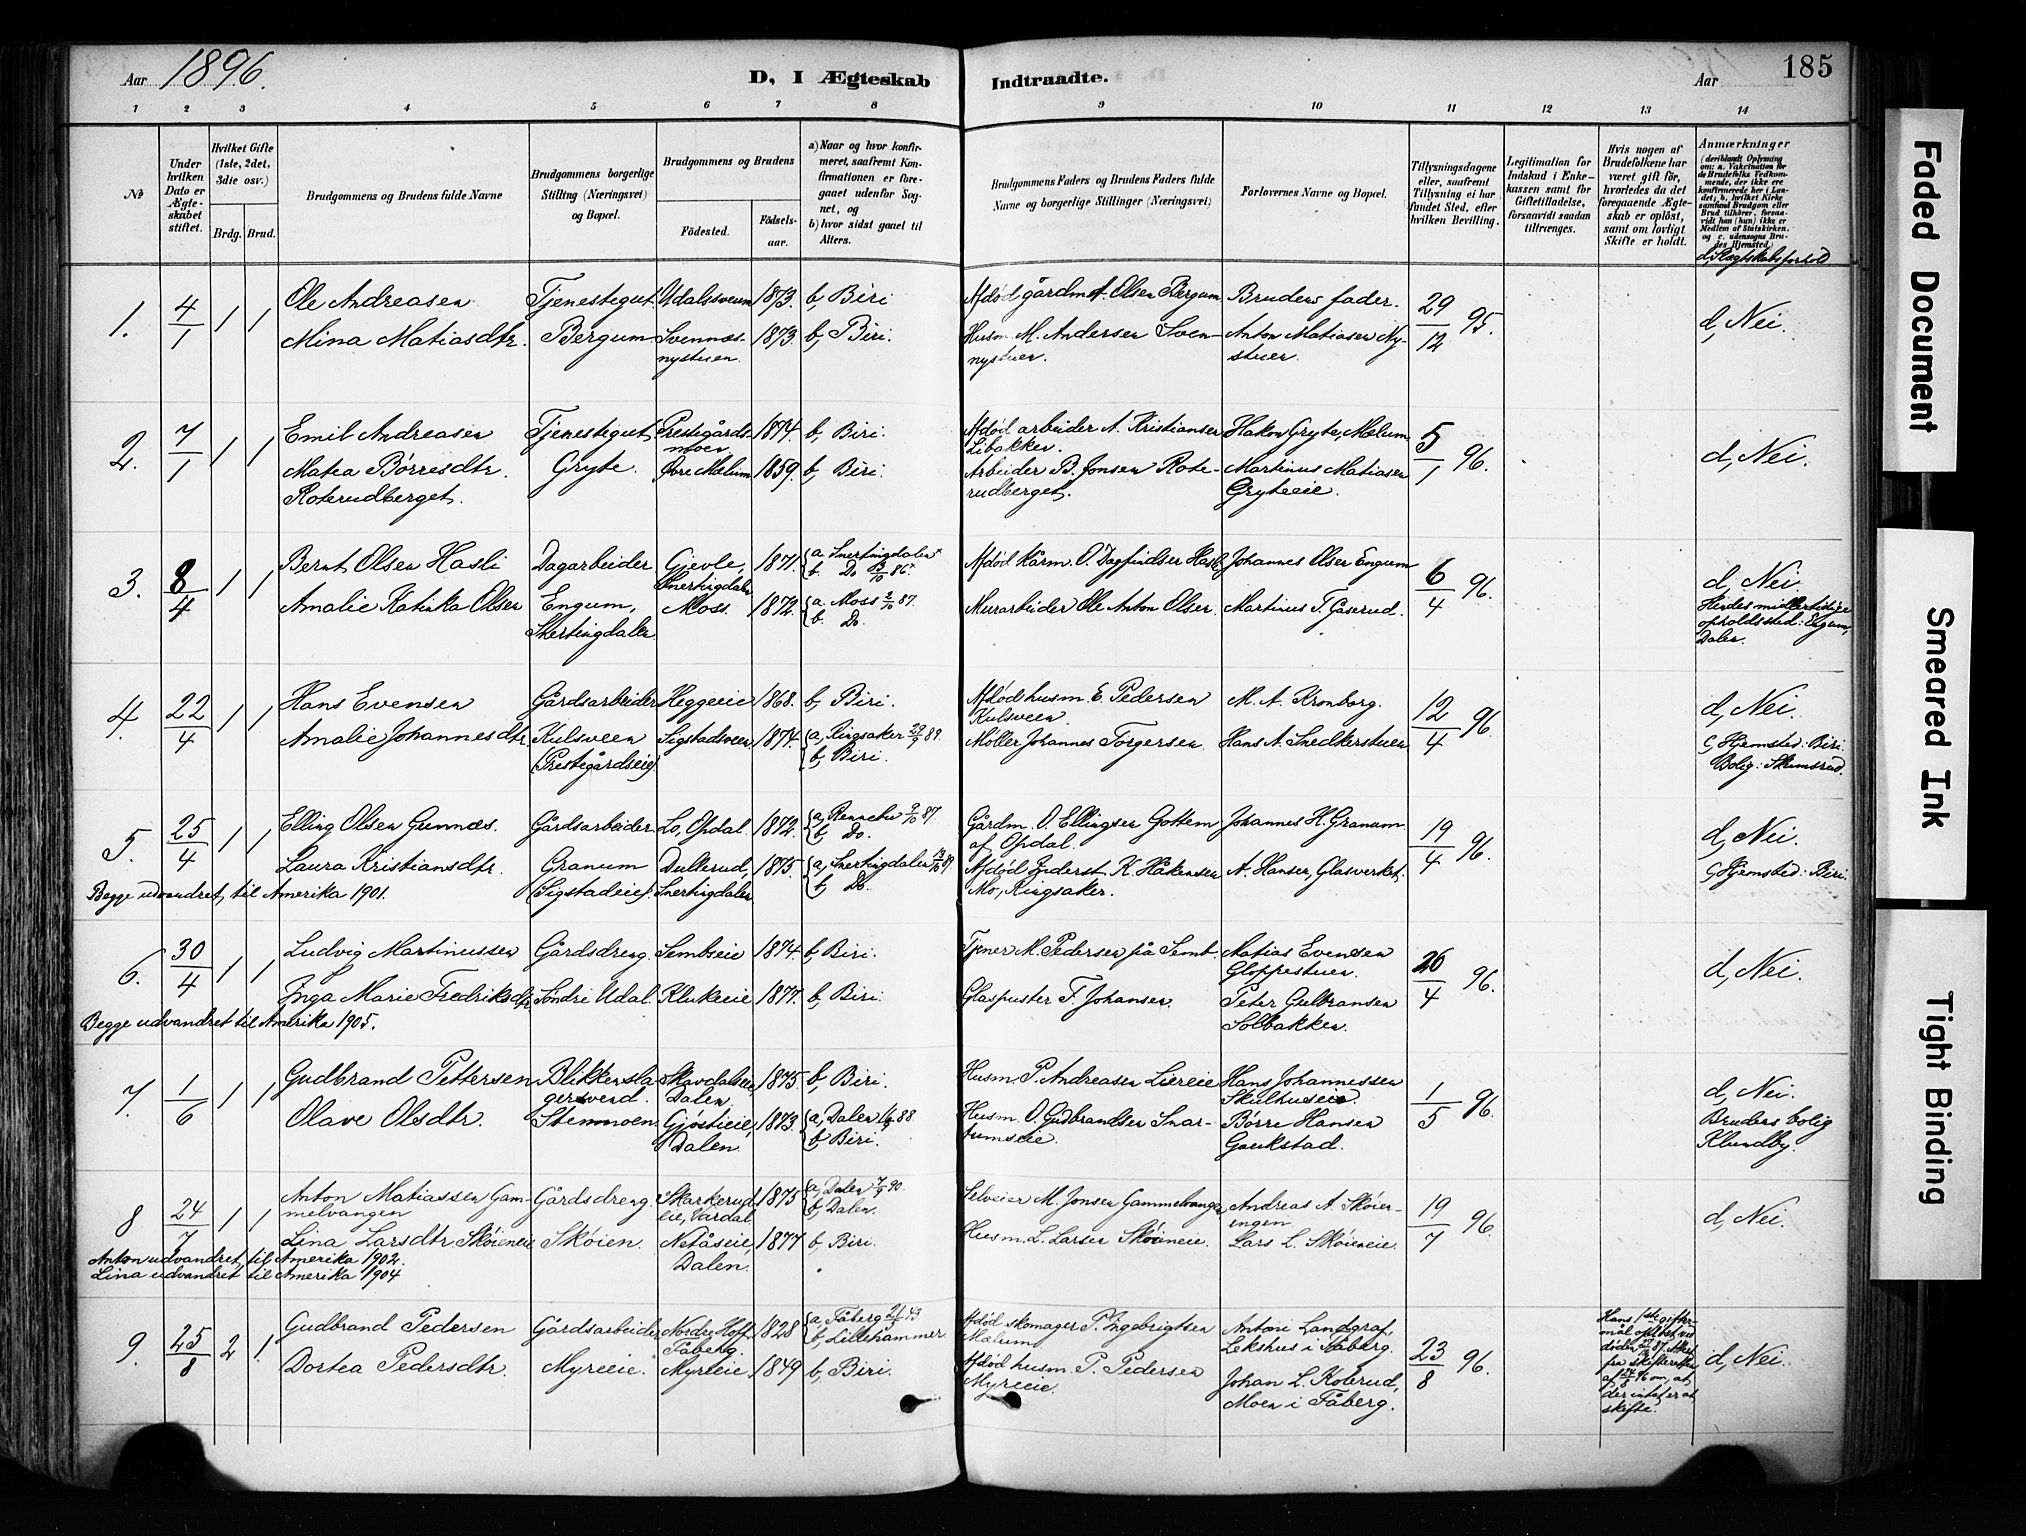 Aar 1896.
D, I Ægteskab
Indtraadte.
Aar
185
1 2 3 4 5 6 7 8 9 10 11 12 13 14
No
Under hvilken Dato er Ægteskabet stiftet.
Hvilket Gifte (1ste, 2det, 3die osv.)
Brdg. Brud.
Brudgommens og Brudens fulde Navne
Brudgommens borgerlige Stilling (Næringsvei) og Bopæl.
Brudgommens og Brudens
Fødested.
Fødselsaar.
a) Naar og hvor konfirmeret, saafremt Konfirmationen er foregaaet udenfor Sognet, og
b) hvor sidst gaaet til Alters.
Brudgommens Faders og Brudens Faders fulde Navne og borgerlige Stillinger (Næringsvei)
Forlovernes Navne og Bopæl.
Tillysningsdagene eller, saafremt Tillysning ei har fundet Sted, efter hvilken Bevilling.
Legitimation for Indskud i Enkekassen samt for Giftetilladelse, forsaavidt saadan tiltrænges.
Hvis nogen af Brudefolkene har været gift før, hvorledes da det foregaaende Ægteskab er opløst, samt om lovligt Skifte er holdt.
Anmærkninger
(deriblandt Oplysning om: a. Vaccination for de Brudefolks Vedkommende, der ikke ere konfirmerede her i Landet; b. hvilket Kirkesamfund Brudgom eller Brud tilhører, forsaavidt han (hun) ikke er Medlem af Statskirken, og c. udensogns Brudes Hjemsted)
d, Slægtskabsforhold
1. 4/1 1 1
Ole Andreasen Tjenestegut Udalssveum 1873. b, Biri
Afdød gårdm. A. Olsen Bergum Brudens fader. 29/12 95. d, Nei.
Mina Matiasdtr. Bergum Svennæs- 1873. b, Biri.
nystuen.
Husm. M. Andersen Sven- Anton Matiasen Ny-
nystuen. stuen.
2. 7/1 1 1
Emil Andreasen Tjenestegut Prestegårds- 1874. b, Biri.
moen
Afdød arbeider A. Kristiansen Hakon Gryte, Mælum 5/1 96. d, Nei.
Libakken.
Matea Børresdtr. Gryte. Øvre Mælum 1859. b, Biri.
Roterudberget.
Arbeider B. Jonsen Rote- Martinus Matiasen
rudberget. Gryteeie.
3. 8/4 1 1
Bernt Olsen Hasli Dagarbeider Gjevle, 1871. a. Snertingdalen
Snertingdalen b. Do 86.
Afdød kårm. O. Dagfindsen Hasli Johannes Olsen Engum 6/4 96. d, Nei.
Amalie Katinka Olsen Engum, Moss. 1872. a. Moss 2/10 87.
Snertingdalen. b. Do.
Murarbeider Ole Anton Olsen. Martinus T. Gaserud.
Hendes midlertidige
opholdssted: Engum,
Dalen.
4. 22/4 1 1
Hans Evensen Gårdsarbeider Heggeeie 1868. b, Biri.
Afdød husm. E. Pedersen M. A. Kronborg. 12/4 96. d, Nei.
Kulsveen.
Amalie Johannesdtr. Kulsveen Sigstadsveen 1874. a, Ringsaker 29/9 89.
(Prestegårdseie) b, Biri.
Møller Johannes Torgersen. Hans A. Snedkerstuen
c, Hjemsted: Biri.
Bolig: Skumsrud.
5. 25/4 1 1
Elling Olsen Grennæs. Gårdsarbeider Lo, Opdal. 1872. a, Rennebu 9/10 87
b, Do.
Gårdm. O. Ellingsen Gottem Johannes H. Granum. 19/4 96. d, Nei.
af Opdal.
Laura Kristiansdtr. Granum Dulterud, 1875. a, Snertingdalen 89.
(Sigstadeie). Snertingdalen b, Do.
Afdød Inderst K. Håkensen A. Hansen, Glasverket.
Mo, Ringsaker.
c, Hjemsted: Biri.
Begge udvandret, til Amerika 1901.
6. 30/4 1 1
Ludvig Martinussen Gårdsdreng. Sembseie 1874. b, Biri.
Tjener M. Pedersen på Semb. Matias Evensen 26/4 96. d, Nei.
Gloppestuen.
Inga Marie Fredriksdtr. Søndre Udal. Klukeeie 1877. b, Biri.
Glaspuster F. Johansen. Peter Gulbransen
Solbakken.
Begge udvandret til Amerika 1905.
7. 1/6 1 1
Gudbrand Pettersen Blikkensla- Skavdalseie, 1875 b, Biri.
gersvend. Dalen.
Husm. P. Andreasen Liereie Hans Johannessen 1/5 96. d, Nei.
Skulhuseie.
Olave Olsdtr. Stemmoen. Gjøstieie, 1873. a, Dalen 88.
Dalen. b, Biri.
Husm. O. Gudbrandsen Snar- Børre Hansen
tumseie. Gaukstad.
Brudens bolig
Klundby.
8 24/7 1 1
Anton Matiassen Gam- Gårdsdreng. Skarkerud- 1875 a, Dalen 7/9 90.
melvangen eie, Vardal b, Dalen.
Selveier M. Jonsen Gammelvangen Andreas A. Skøien- 19/7 96. d, Nei.
engen
Lina Larsdtr. Skøieneie Skøien. Netåseie, 1877 b, Biri.
Dalen.
Husm. L. Larsen Skøieneie. Lars L. Skøieneie.
Anton udvandret, til Amerika 1902.
Lina udvandret til Amerika 1904
9. 25/8 2 1.
Gudbrand Pedersen Gårdsarbeider Nordre Hoff 1828 a, Fåberg 43
Fåberg. b, Lillehammer
Afdød skomager P. Ingebrigtsen Antoni Landgraf, 23/8 96. d, Nei.
Mælum. Lekshus i Fåberg.
Dortea Pedersdtr. Myreeie. Myreeie 1849 b, Biri.
Afdød husm. P. Pedersen Johan L. Kolerud,
Myreeie. Moen i Fåberg.
Hans 1ste gifter-
mål opløst ved
døden 87. Attest
fra skifteretten
af 24/8 96 om, at
der intet er at
skifte.
Faded Document
Smeared Ink
Tight Binding